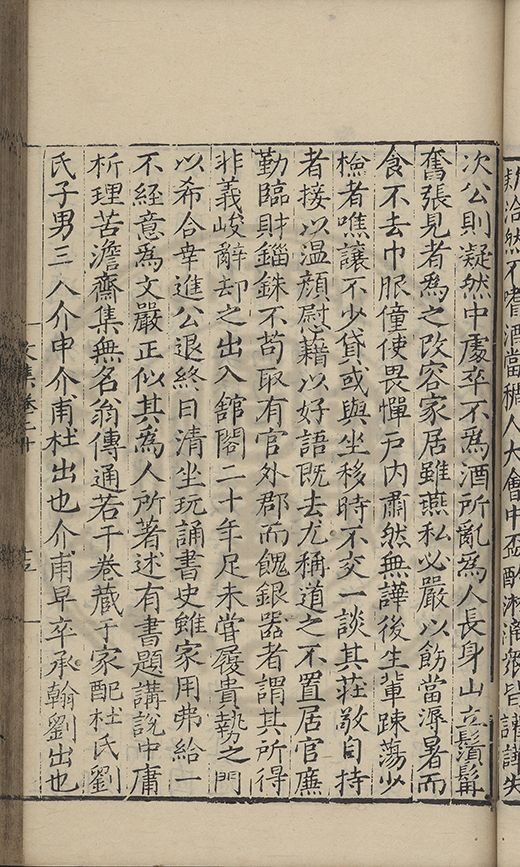 勲洽然不嗜酒當稠人大會中盃酌淋漓衆皆讙譁失
次公則凝然中處卒不爲酒所亂爲人長身山立鬚髯
奮張見者爲之改容家居雖燕私必嚴以飭當溽暑而
食不去巾服僮使畏憚戸内肅然無譁後生輩踈蕩少
檢者噍讓不少貸或與坐移時不交一談其莊敬自持
者接以温顔慰藉以好語既去尤稱道之不置居官廉
勤臨財錙銖不苟取有官外郡而餽銀器者謂其所得
非義峻辭却之出入舘閣二十年足未甞履貴執之門
以希合幸進公退終日清坐玩誦書史雖家用弗給一
不經意爲文嚴正似其爲人所著述有書題講說中庸
析理苦澹齋集無名翁傳通若干卷蔵于家配杜氏劉
氏子男三人介申介甫杜出也介甫早卒承翰劉出也
文集卷二十
十五